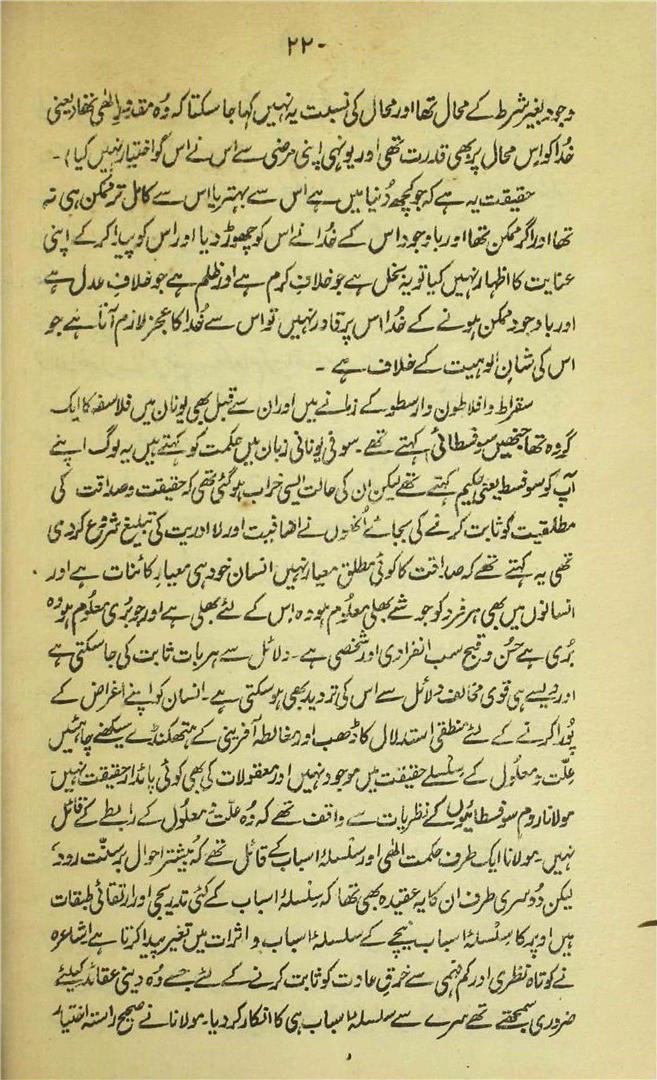 ۲۲۰
وجود بغیر شرط کے محال تھا اور محال کی نسبت یہ نہیں کہا جا سکتا کہ وُہ مقدورِ الٰہی تھا (یعنی
خُدا کو اس محال پر بھی قدرت تھی اور یونہی اپنی مرضی سے اس نے اس کو اختیار نہیں کیا)۔
حقیقت یہ ہے کہ جو کچھ دُنیا میں ہے اس سے بہتر یا اس سے کامل تر ممکن ہی نہ
تھا اور اگر ممکن تھا اور باوجود اس کے خُدا نے اس کو چھوڑ دیا اور اس کو پیدا کرکے اپنی
عنایت کا اظہار نہیں کیا تو یہ بخل ہے جو خلافِ کرم ہے اور ظلم ہے جو خلافِ عدل ہے
اور باوجود ممکن ہونے کے خُدا اس پر قادر نہیں تو اس سے خُدا کا عجز لازم آتا ہے جو
اس کی شانِ الوہیت کے خلاف ہے ۔
سقراط و افلاطون و ارسطو کے زمانے میں اور ان سے قبل بھی یونان میں فلاسفہ کا ایک
گروہ تھا جنھیں سوفسطائی کہتے تھے۔ سوفی یونانی زبان میں حکمت کو کہتے ہیں یہ لوگ اپنے
آپ کو سوفسط یعنی حکیم کہتے تھے لیکن ان کی حالت ایسی خراب ہو گئی تھی کہ حقیقت و صداقت کی
مطلقیت کو ثابت کرنے کی بجائے اُنھوں نے اضافیت اور لاادریت کی تبلیغ شروع کر دی
تھی یہ کہتے تھے کہ صداقت کا کوئی مطلق معیار نہیں انسان خود ہی معیارِ کائنات ہے اور
انسانوں میں بھی ہر فرد کو جو شے بھلی معلوم ہو وہ اس کے لئے بھلی ہے اور جو بُری معلوم ہو وہ
بُری ہے حُسن و قبح سب انفرادی اور شخصی ہے۔ دلائل سے ہر بات ثابت کی جا سکتی ہے
اور ویسے ہی قوی مخالف دلائل سے اس کی تردید بھی ہو سکتی ہے۔ انسان کو اپنے اغراض کے
پُورا کرنے کے لئے منطقی استدلال کا ڈھب اور مغالطہ آفرینی کے ہتھکنڈے سیکھنے چاہئیں
علّت و معلُول کے سِلسلے حقیقت میں موجود نہیں اور معقولات کی بھی کوئی پائدار حقیقت نہیں
مولانا روم سوفسطائیوں کے نظریات سے واقف تھے کہ وُہ علّت و معلُول کے رابطے کے قائل
نہیں۔ مولانا ایک طرف حکمتِ الٰہی اور سِلسلۂ اسباب کے قائل تھے کہ بیشتر احوال بر سنّت رود،
لیکن دُوسری طرف ان کا یہ عقیدہ بھی تھا کہ سِلسلۂ اسباب کے کئی تدریجی اور ارتقائی طبقات
ہیں اُوپر کا سِلسلۂ اسباب نیچے کے سلسلۂ اسباب و اثرات میں تغیر پیدا کرتا ہے اشاعرہ
نے کوتاہ نظری اور کم فہمی سے خرقِ عادت کو ثابت کرنے کے لئے جسے وُہ دینی عقائد کیلئے
ضروری سمجھتے تھے سرے سے سلسلۂ اسباب ہی کا انکار کر دیا۔ مولانا نے صحیح راستہ اختیار